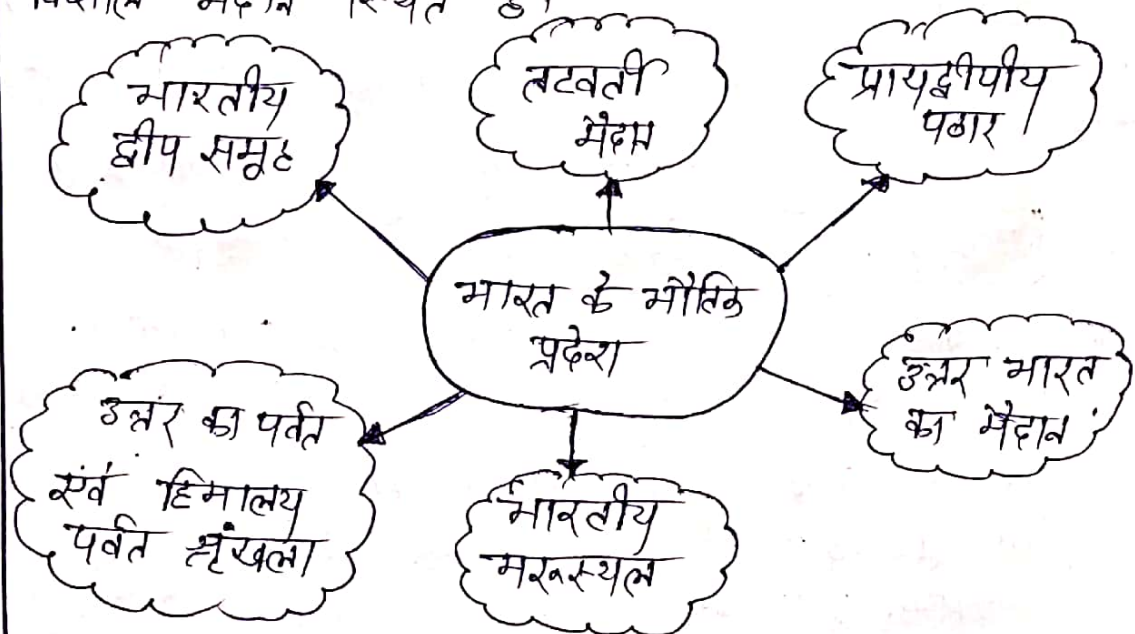 मैदान स्थित
भारतीय
द्वीप समूह
तटवर्ती
मैदान
प्रायद्वीपीय
पठार
भारत के भौतिक
प्रदेश
उत्तर भारत
का मैदान
उत्तर का पर्वत
एवं हिमालय
पर्वत श्रृंखला
भारतीय
मरूस्थल